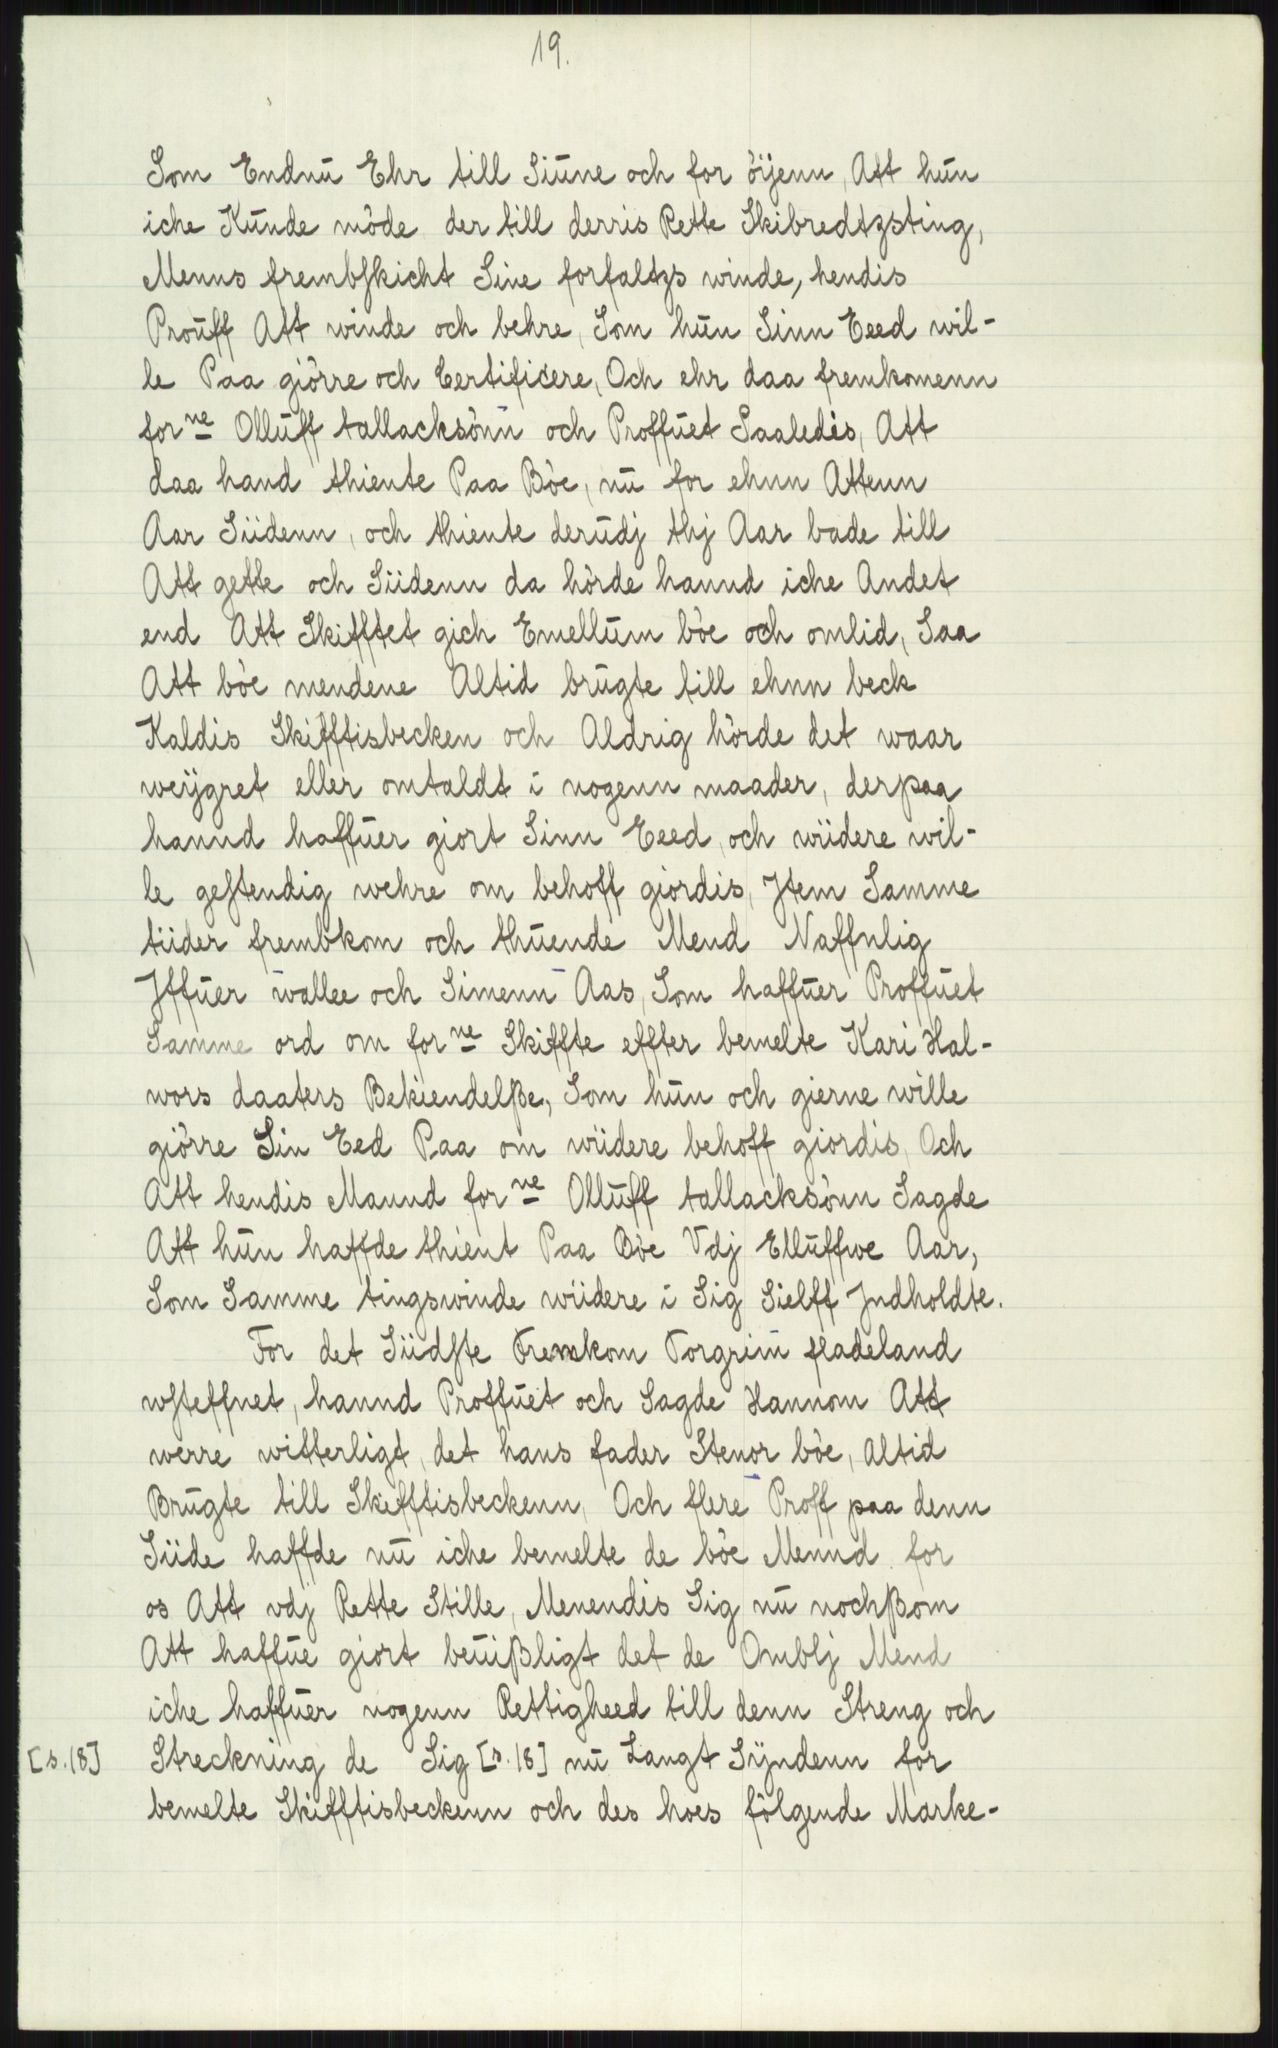 19.
Som Endnu Ehr till Siune och for öÿenn, Att hun
iche Kunde möde der till derris Rette Skibredtzsting,
Menns frembskicht Sine forfaltzs winde, hendis
Prouff Att winde och behre, Som hun Sinn Eeed wil-
le Paa giörre och Certificere, Och ehr daa fremkomenn
forne Olluff tallacksönn och Proffuet Saaledis, Att
daa hand thiente Paa Böe, nu for ehnn Attenn
Aar Siidenn, och thiente derudj thj Aar bade till
Att gette och Siidenn da hörde hannd iche Andet
end Att Skifftet gich Emellum böe och omlid, Saa
Att böe mendene Altid brugte till ehnn beck
Kaldis Skifftisbecken och Aldrig hörde det waar
weÿgret eller omtaldt i nogenn maader, derpaa
hannd haffuer giort Sinn Eeed, och wiidere wil-
le gestendig wehre om behoff giordis, Jtem Samme
tiider frembkom och thuende Mend Naffnlig
Jffuer wallee och Simenn Aas, Som haffuer Proffuet
Samme ord om forne Skiffte effter bemelte Kari Hal-
wors daaters Bekiendelße, Som hun och gierne wille
giörre Sin Eed Paa om wiidere behoff giordis, Och
Att hendis Mannd forne Olluff tallacksönn Sagde
Att hun haffde thient Paa Böe Vdj Elluffwe Aar,
Som Samme tingswinde wiidere i Sig Sielff Jndholdte.
For det Siidste Fremkom Torgrim fladeland
wsteffnet, hannd Proffuet och Sagde Hannom Att
werre witterligt, det hans fader Stenor böe, Altid
Brugte till Skifftisbeckenn, Och flere Proff paa denn
Siide haffde nu iche bemelte de böe Mennd for
os Att vdj Rette Stille, Menendis Sig nu nochßom
Att haffue giort beuißligt det de Omblj Mend
iche haffuer nogenn Rettigheed till denn Streng och
[s.18] Streckning de Sig [s.18] nu Langt Sÿndenn for
bemelte Skifftisbeckenn och des hoes fölgende Marke-